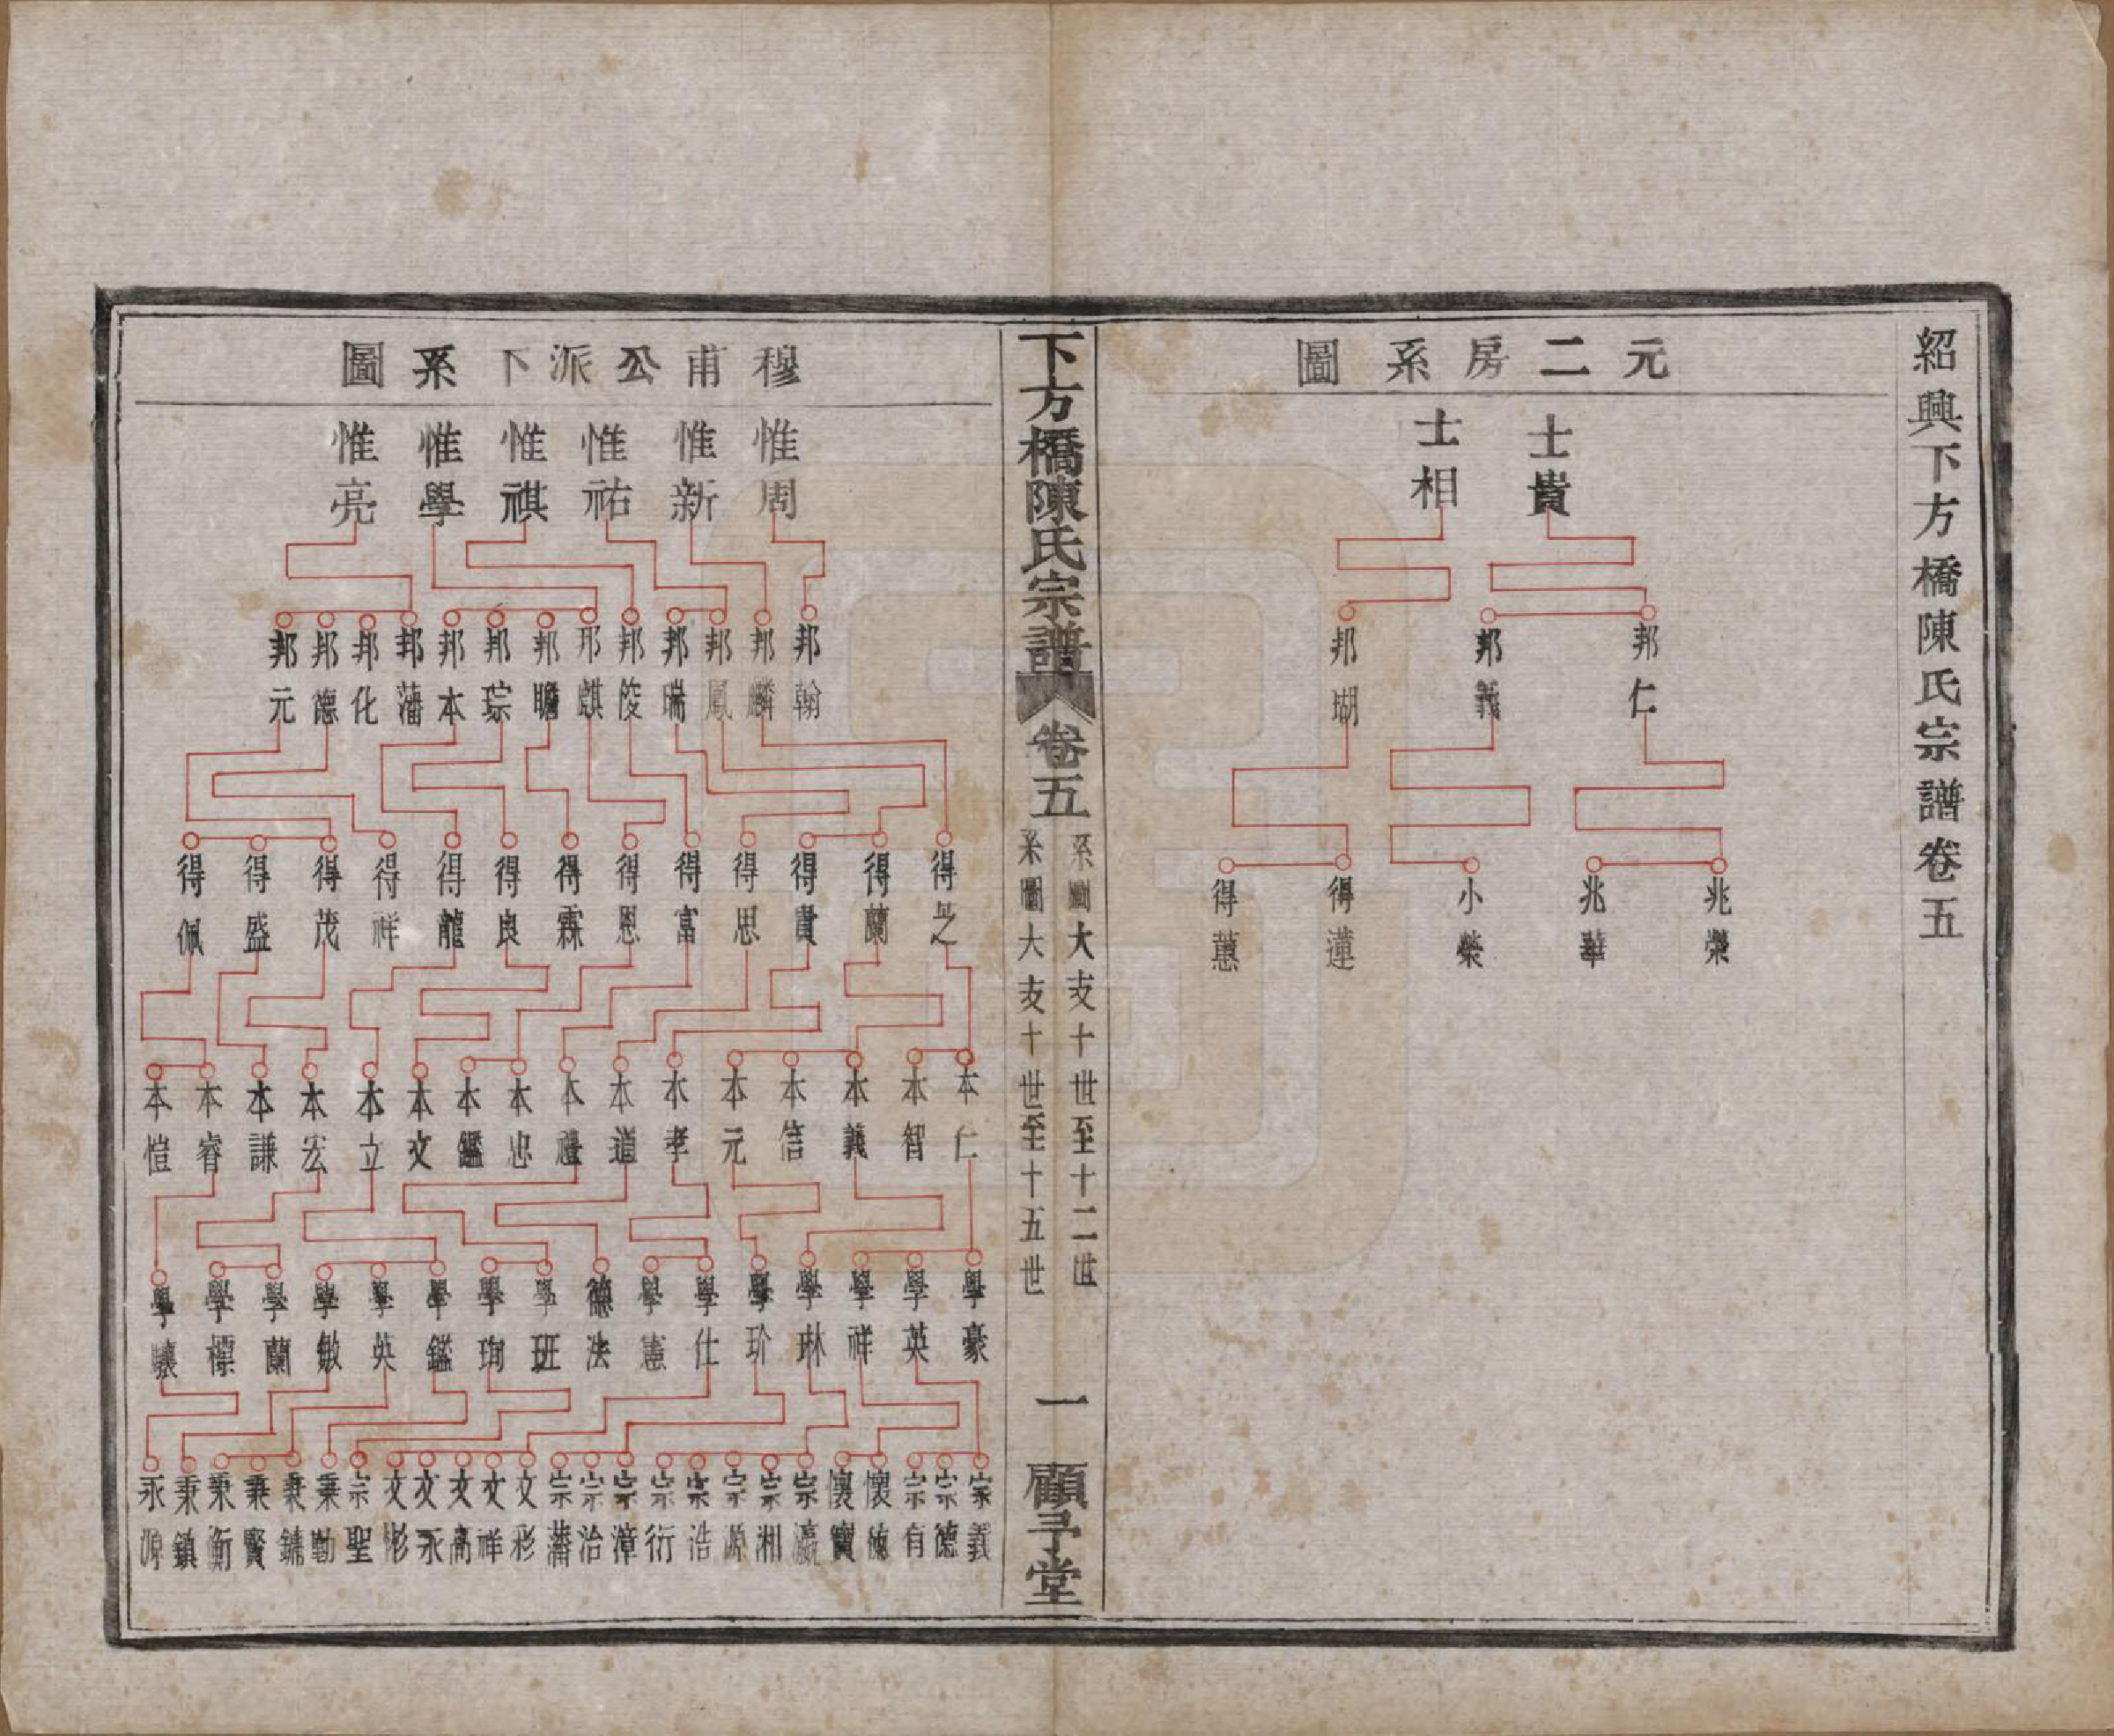 紹興下方橋陳氏宗譜卷五
元二房系圖
士貴 士相
邦仁 邦義 邦瑚
兆榮 兆華 小榮 得蓮 得蕙
下方橋陳氏宗譜 卷五
系圖大支十世至十二世
系圖大支十世至十五世
一
顧予堂
穆甫公派下系圖
惟周 惟新 惟祐 惟祺 惟學 惟亮
邦翰 邦麟 邦鳳 邦瑞 邦俊 邦麒 邦瞻 邦琮 邦本 邦藩 邦化 邦德 邦元
得芝 得蘭 得貴 得思 得富 得恩 得霖 得良 得龍 得祥 得茂 得盛 得佩
本仁 本智 本義 本信 本元 本孝 本道 本禮 本忠 本鑑 本文 本立 本宏 本謙 本睿 本愷
學豪 學英 學祥 學琳 學玠 學仕 學憲 德法 學班 學珣 學鑑 學英 學敏 學蘭 學標 學驤
宗義 宗德 宗有 懷德 懷寶 宗瀛 宗湘 宗源 宗浩 宗衍 宗漳 宗治 宗藩 文彩 文祥 文高 文永 文彬 宗聖 秉勤 秉鏞 秉賢 秉衡 秉鎮 永源